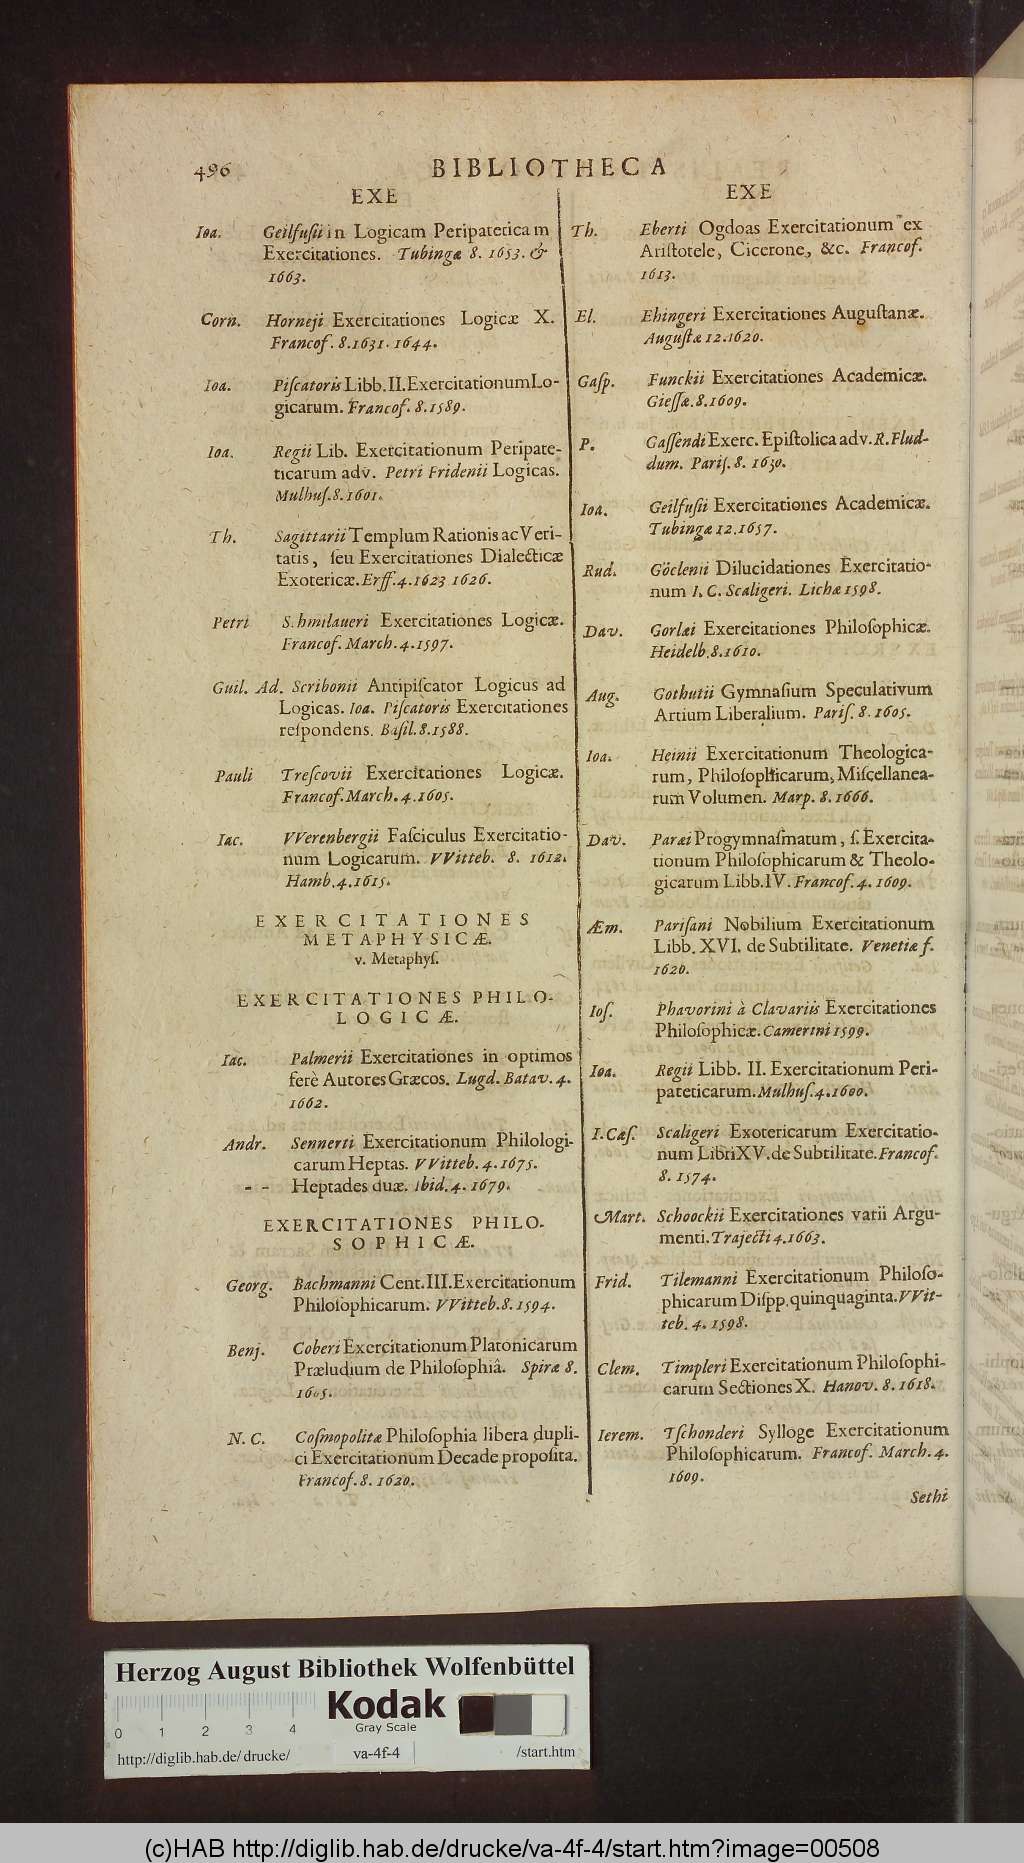 496 BIBLIOTHECA
EXE
Ioa. Geilfuſii in Logicam Peripatetica m
Exercitationes. Tubingæ 8. 1653. &
1663.
Corn. Horneji Exercitationes Logicæ X.
Francof. 8.1631. 1644.
Ioa. Piſcatoris Libb. II. Exercitationum Lo-
gicarum. Francof. 8.1589.
Ioa. Regii Lib. Exercitationum Peripate-
ticarum adv. Petri Fridenii Logicas.
Mulhuſ. 8. 1601.
Th. Sagittarii Templum Rationis ac Veri-
tatis, ſeu Exercitationes Dialecticæ
Exotericæ. Erff. 4. 1623 1626.
Petri S.hmilaueri Exercitationes Logicæ.
Francof. March. 4. 1597.
Guil. Ad. Scribonii Antipiſcator Logicus ad
Logicas. Ioa. Piſcatoris Exercitationes
reſpondens. Baſil. 8. 1588.
Pauli Treſcovii Exercitationes Logicæ.
Francof. March. 4. 1605.
Iac. VVerenbergii Faſciculus Exercitatio-
num Logicarum. VVitteb. 8. 1612.
Hamb. 4. 1615.
EXERCITATIONES
METAPHYSICÆ.
v. Metaphyſ.
EXERCITATIONES PHILO-
LOGICÆ.
Iac. Palmerii Exercitationes in optimos
ferè Autores Græcos. Lugd. Batav. 4.
1662.
Andr. Sennerti Exercitationum Philologi-
carum Heptas. VVitteb. 4. 1675.
- - Heptades duæ. Ibid. 4. 1679.
EXERCITATIONES PHILO-
SOPHICÆ.
Georg. Bachmanni Cent. III. Exercitationum
Philoſophicarum. VVitteb. 8. 1594.
Benj. Coberi Exercitationum Platonicarum
Præludium de Philoſophiâ. Spiræ 8.
1605.
N. C. Coſmopolitæ Philoſophia libera dupli-
ci Exercitationum Decade propoſita.
Francof. 8. 1620.
EXE
Th. Eberti Ogdoas Exercitationum ex
Ariſtotele, Cicerone, &c. Francof.
1613.
El. Ehingeri Exercitationes Auguſtanæ.
Auguſtæ 12. 1620.
Gaſp. Funckii Exercitationes Academicæ.
Gieſſæ. 8. 1609.
P. Gaſſendi Exerc. Epiſtolica adv. R. Flud-
dum. Pariſ. 8. 1630.
Ioa. Geilfuſii Exercitationes Academicæ.
Tubingæ 12. 1657.
Rud. Göclenii Dilucidationes Exercitatio-
num I. C. Scaligeri. Lichæ 1598.
Dav. Gorlæi Exercitationes Philoſophicæ.
Heidelb. 8. 1610.
Aug. Gothutii Gymnaſium Speculativum
Artium Liberalium. Pariſ. 8. 1605.
Ioa. Heinii Exercitationum Theologica-
rum, Philoſophicarum, Miſcellanea-
rum Volumen. Marp. 8. 1666.
Dav. Paræi Progymnaſmatum, ſ. Exercita-
tionum Philoſophicarum & Theolo-
gicarum Libb. IV. Francof. 4. 1609.
Æm. Pariſani Nobilium Exercitationum
Libb. XVI. de Subtilitate. Venetiæ f.
1620.
Ioſ. Phavorini à Clavariis Exercitationes
Philoſophicæ. Camerini 1599.
Ioa. Regii Libb. II. Exercitationum Peri-
pateticarum. Mulhuſ. 4. 1600.
I. Cæſ. Scaligeri Exotericarum Exercitatio-
num Libri XV. de Subtilitate. Francof.
8. 1574.
Mart. Schoockii Exercitationes varii Argu-
menti. Trajecti 4. 1663.
Frid. Tilemanni Exercitationum Philoſo-
phicarum Diſpp. quinquaginta. VVit-
teb. 4. 1598.
Clem. Timpleri Exercitationum Philoſophi-
carum Sectiones X. Hanov. 8. 1618.
Ierem. Tſchonderi Sylloge Exercitationum
Philoſophicarum. Francof. March. 4.
1609.
Sethi
Herzog August Bibliothek Wolfenbüttel
Kodak
Gray Scale
0 1 2 3 4
http://diglib.hab.de/drucke/ va-4f-4 /start.htm
(c)HAB http://diglib.hab.de/drucke/va-4f-4/start.htm?image=00508